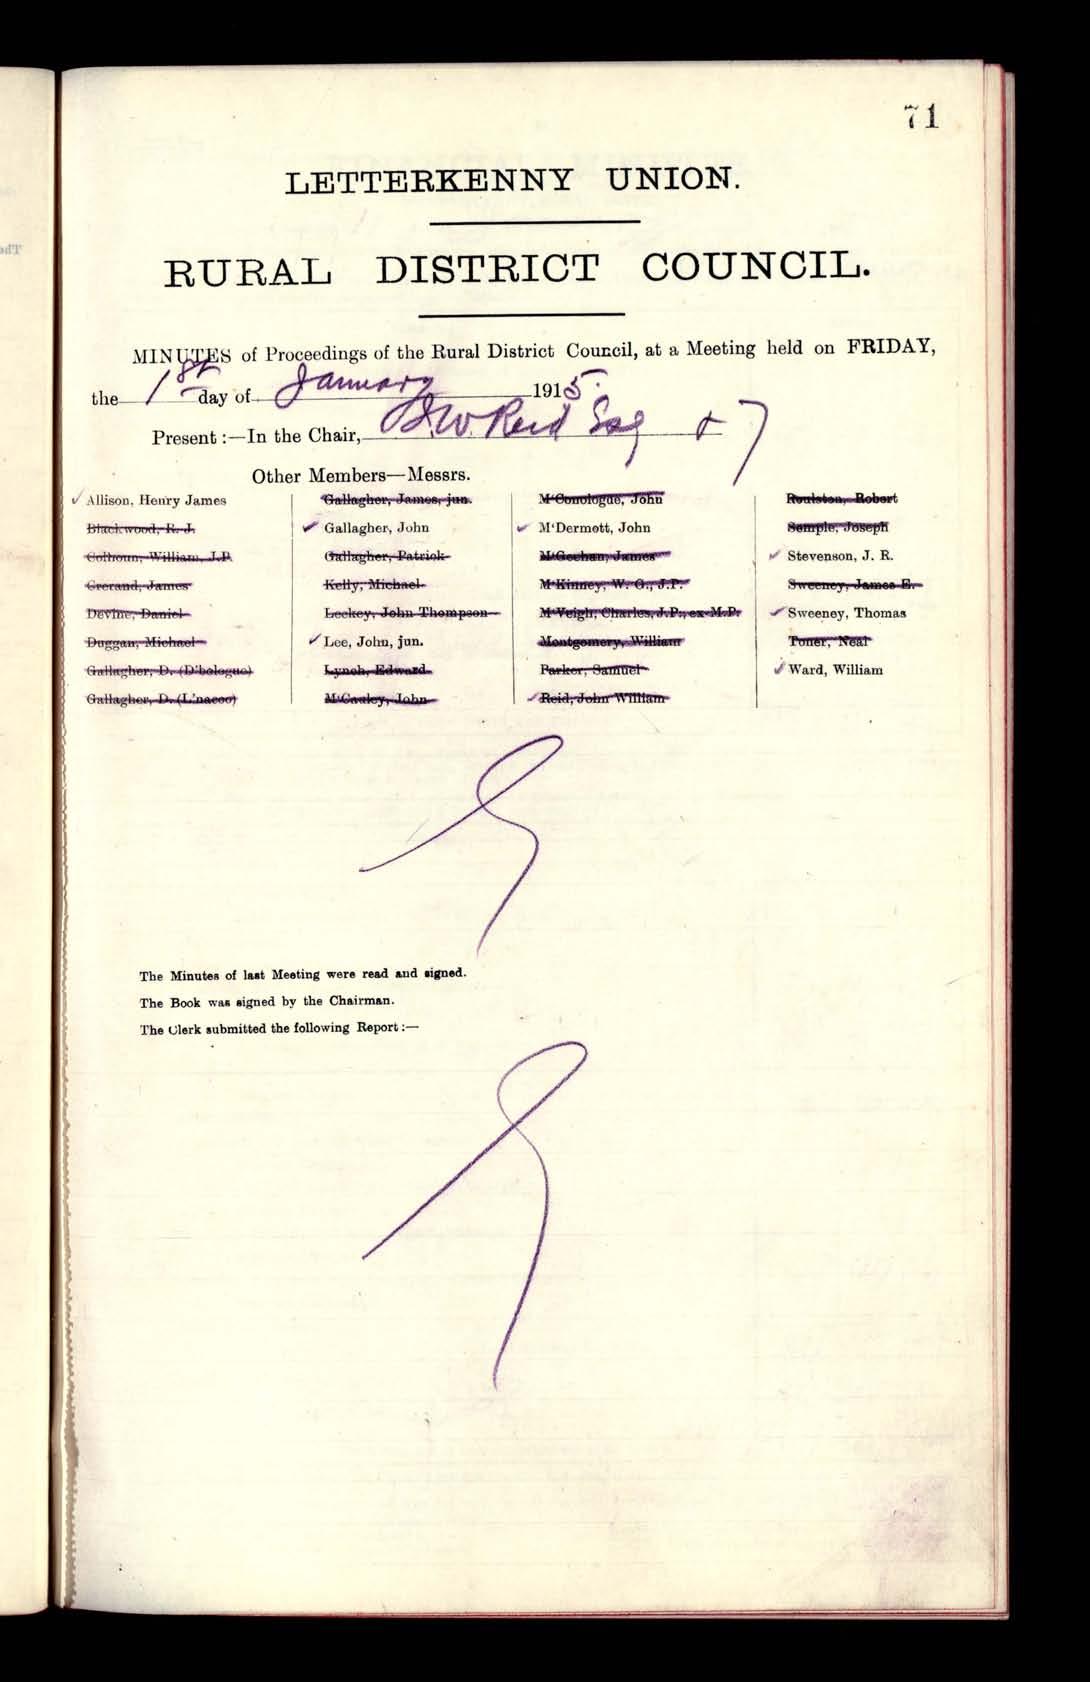 71
LETTERKENNY UNION.
RURAL DISTRICT COUNCIL.
MINUTES of Proceedings of the Rural District Council, at a Meeting held on FRIDAY,
the 1st day of January 1915.
Present :—In the Chair, J.W. Reid Esq + 7
Other Members—Messrs.
Allison, Henry James
Blackwood, R. J.
Colhoun, William, J.P.
Crerand, James
Devine, Daniel
Duggan, Michael
Gallagher, D. (D'bologue)
Gallagher, D. (L'nacoo)
Gallagher, James, jun.
Gallagher, John
Gallagher, Patrick
Kelly, Michael
Leckey, John Thompson
Lee, John, jun.
Lynch, Edward
M'Cauley, John
M'Conologue, John
M'Dermott, John
M'Geehan, James
M'Kinney, W. G., J.P.
M'Veigh, Charles, J.P., ex-M.P.
Montgomery, William
Parker, Samuel
Reid, John William
Roulston, Robert
Semple, Joseph
Stevenson, J. R.
Sweeney, James E.
Sweeney, Thomas
Toner, Neal
Ward, William
The Minutes of last Meeting were read and signed.
The Book was signed by the Chairman.
The Clerk submitted the following Report :—